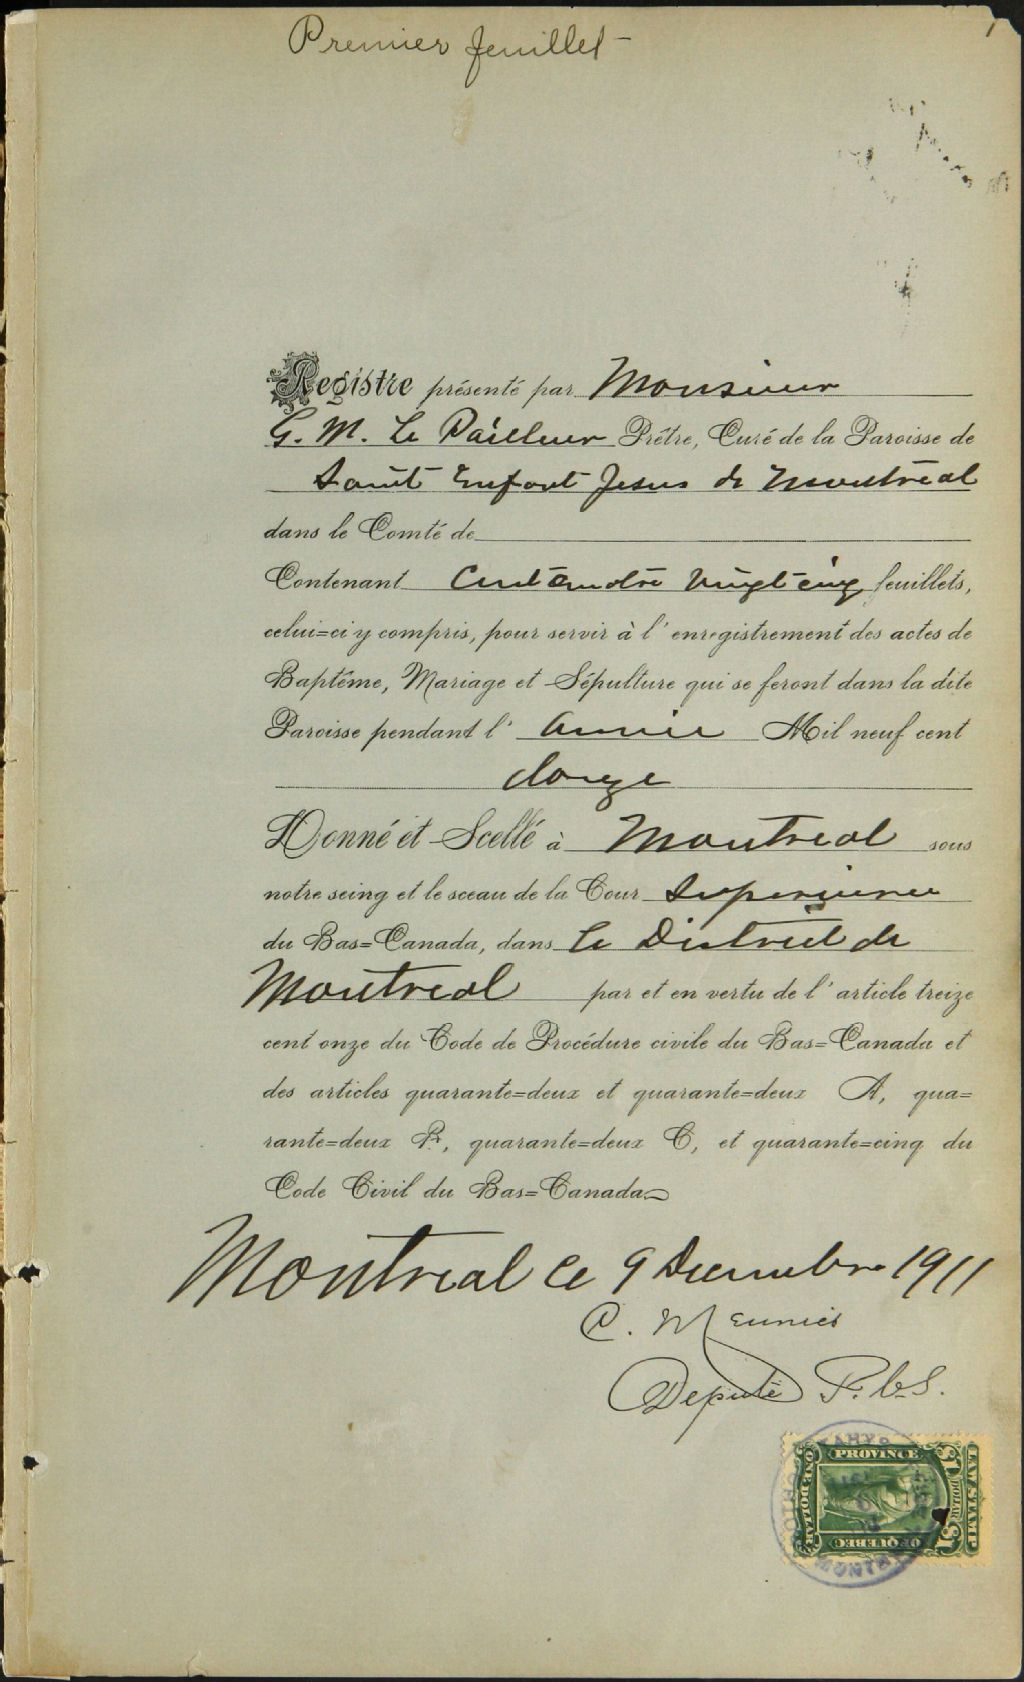 Premier feuillet
1
Registre présenté par Monsieur
G. M. Le Pailleur Prêtre, Curé de la Paroisse de
Saint Enfant Jesus de Montréal
dans le Comté de
Contenant Cent quatre vingt cinq feuillets,
celui=ci y compris, pour servir à l'enregistrement des actes de
Baptême, Mariage et Sépulture qui se feront dans la dite
Paroisse pendant l'année Mil neuf cent
douze
Donné et Scellé à Montreal sous
notre seing et le sceau de la Cour Superieure
du Bas=Canada, dans le District de
Montreal par et en vertu de l'article treize
cent onze du Code de Procédure civile du Bas=Canada et
des articles quarante=deux et quarante=deux A, qua=
rante=deux B, quarante=deux C, et quarante=cinq du
Code Civil du Bas=Canada
Montreal ce 9 Decembre 1911
C. Meunier
Deputé P. C. S.
PROVINCE
OF QUEBEC
ONE DOLLAR
$1 DOLLAR $1
LAW STAMP